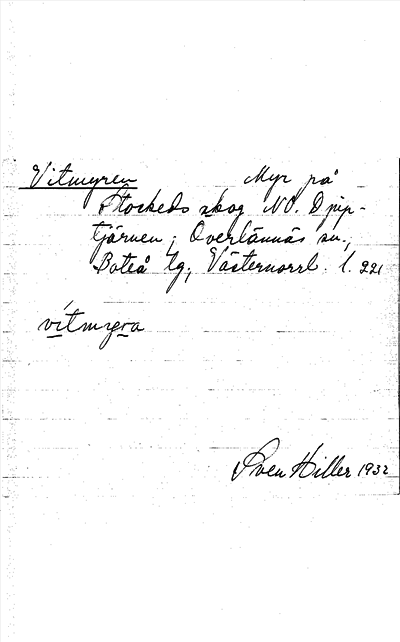 Vitmyren Myr på
Stockeds skog NO. Djup-
tjärnen; Överlännäs sn.,
Boteå tg; Västernorrl. l. 221
vitmyra
Sven Hiller 1932